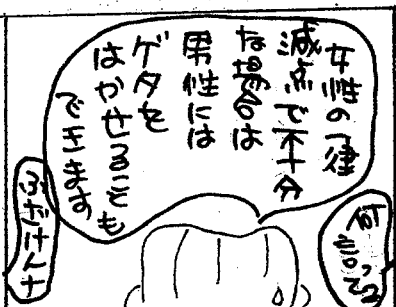 女性の一律
減点で不十分
な場合は
男性には
ゲタを
はかせることも
できます
何言ってる
ふざけんナ